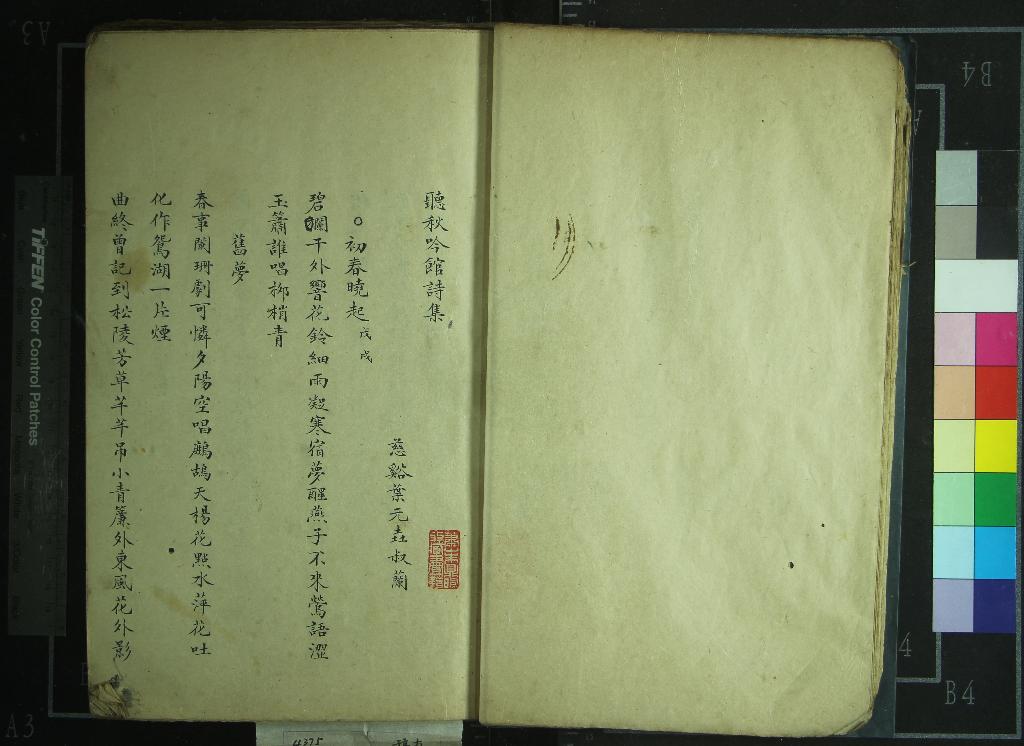 聽秋吟館詩集
慈谿葉元垚叔蘭
初春曉起 戊戌
碧闌干外響花鈴細雨凝寒宿夢醒燕子不來鶯語澀
玉簫誰唱柳梢青
舊夢
春事闌珊劇可憐夕陽空唱鷓鴣天楊花點水萍花吐
化作鴛湖一片煙
曲終曾記到松陵芳草芊芊吊小青簾外東風花外影
TIFFEN Color Control Patches
A3
B4
B4
A3
4375